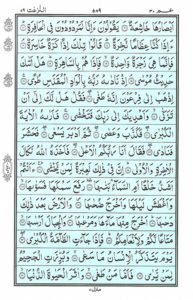 عم ٣٠ ٥٨٩ النّٰزعٰت ٧٩
اَبْصَارُهَا خَاشِعَةٌ يَقُوْلُوْنَ ءَاِنَّا لَمَرْدُوْدُوْنَ فِي الْحَافِرَةِ
ءَاِذَا كُنَّا عِظَامًا نَّخِرَةً قَالُوْا تِلْكَ اِذًا كَرَّةٌ خَاسِرَةٌ
فَاِنَّمَا هِيَ زَجْرَةٌ وَّاحِدَةٌ فَاِذَا هُمْ بِالسَّاهِرَةِ هَلْ اَتٰىكَ
حَدِيْثُ مُوْسٰى اِذْ نَادٰىهُ رَبُّهٗ بِالْوَادِ الْمُقَدَّسِ طُوًى
اِذْهَبْ اِلٰى فِرْعَوْنَ اِنَّهٗ طَغٰى فَقُلْ هَلْ لَّكَ اِلٰى اَنْ
تَزَكّٰى وَاَهْدِيَكَ اِلٰى رَبِّكَ فَتَخْشٰى فَاَرٰىهُ الْاٰيَةَ
الْكُبْرٰى فَكَذَّبَ وَعَصٰى ثُمَّ اَدْبَرَ يَسْعٰى فَحَشَرَ
فَنَادٰى فَقَالَ اَنَا رَبُّكُمُ الْاَعْلٰى فَاَخَذَهُ اللّٰهُ نَكَالَ
الْاٰخِرَةِ وَالْاُوْلٰى اِنَّ فِيْ ذٰلِكَ لَعِبْرَةً لِّمَنْ يَّخْشٰى ءَاَنْتُمْ
اَشَدُّ خَلْقًا اَمِ السَّمَآءُ بَنٰىهَا رَفَعَ سَمْكَهَا فَسَوّٰىهَا
وَاَغْطَشَ لَيْلَهَا وَاَخْرَجَ ضُحٰىهَا وَالْاَرْضَ بَعْدَ ذٰلِكَ
دَحٰىهَا اَخْرَجَ مِنْهَا مَآءَهَا وَمَرْعٰىهَا وَالْجِبَالَ اَرْسٰىهَا
مَتَاعًا لَّكُمْ وَلِاَنْعَامِكُمْ فَاِذَا جَآءَتِ الطَّآمَّةُ الْكُبْرٰى
يَوْمَ يَتَذَكَّرُ الْاِنْسَانُ مَا سَعٰى وَبُرِّزَتِ الْجَحِيْمُ
لِمَنْ يَّرٰى فَاَمَّا مَنْ طَغٰى وَاٰثَرَ الْحَيٰوةَ الدُّنْيَا
منزل٧